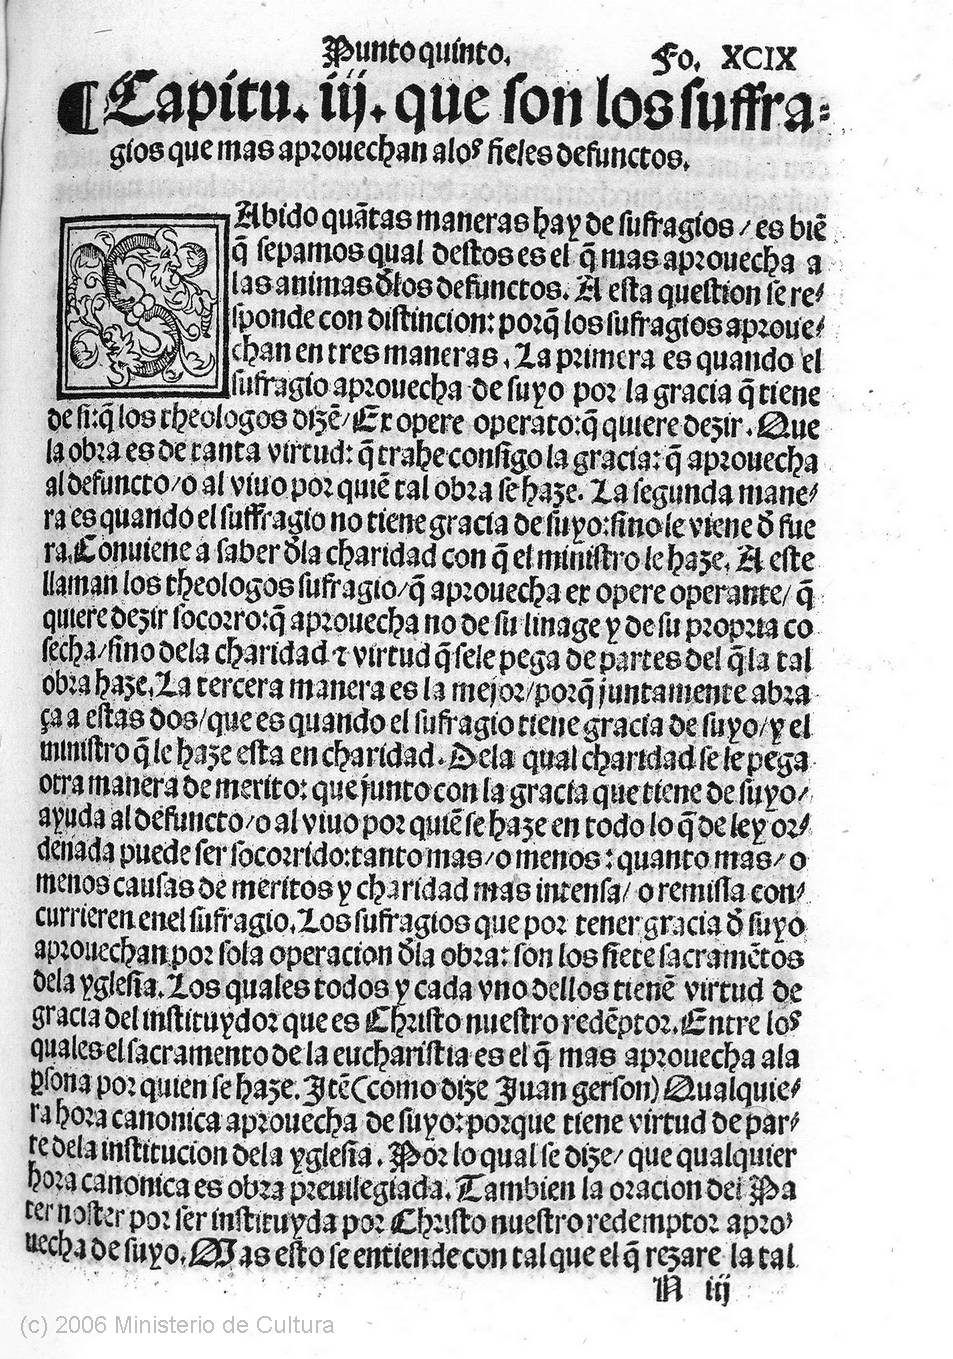 Punto quinto. Fo. XCIX
¶Capitu. iij. que son los suffra-
gios que mas aprouechan a los fieles defunctos.
SAbido quãtas maneras hay de sufragios/es biẽ
q̃ sepamos qual destos es el q̃ mas aprouecha a
las animas d̃los defunctos. A esta question se re/
sponde con distincion: porq̃ los sufragios aproue/
chan en tres maneras. La primera es quando el
sufragio aprouecha de suyo por la gracia q̃ tiene
de si:q̃ los theologos dizẽ/Ex opere operato:q̃ quiere dezir. Que
la obra es de tanta virtud: q̃ trahe consigo la gracia: q̃ aprouecha
al defuncto/o al viuo por quiẽ tal obra se haze. La segunda mane/
ra es quando el suffragio no tiene gracia de suyo:sino le viene d̃ fue
ra.Conuiene a saber d̃la charidad con q̃ el ministro le haze. A este
llaman los theologos sufragio/q̃ aprouecha ex opere operante/ q̃
quiere dezir socorro:q̃ aprouecha no de su linage y de su propria co
secha/sino dela charidad ⁊ virtud q̃ sele pega de partes del q̃ la tal
obra haze.La tercera manera es la mejor/porq̃ juntamente abra
ça a estas dos/que es quando el sufragio tiene gracia de suyo/y el
ministro q̃ le haze esta en charidad. Dela qual charidad se le pega
otra manera de merito: que junto con la gracia que tiene de suyo/
ayuda al defuncto/o al viuo por quiẽ se haze en todo lo q̃ de ley or/
denada puede ser socorrido:tanto mas/o menos: quanto mas/ o
menos causas de meritos y charidad mas intensa/ o remissa con/
currieren enel sufragio.Los sufragios que por tener gracia d̃ suyo
aprouechan por sola operacion d̃la obra: son los siete sacramẽtos
dela yglesia.Los quales todos y cada vno dellos tienẽ virtud de
gracia del instituydor que es Christo nuestro redẽptor.Entre los
quales el sacramento de la eucharistia es el q̃ mas aprouecha ala
ꝑsona por quien se haze. Itẽ(como dize Juan gerson) Qualquie/
ra hora canonica aprouecha de suyo:porque tiene virtud de par/
te dela institucion dela yglesia. Por lo qual se dize/ que qualquier
hora canonica es obra preuilegiada. Tambien la oracion del Pa
ter noster por ser instituyda por Christo nuestro redemptor apro/
uecha de suyo. Mas esto se entiende con tal que el q̃ rezare la tal
N iij
(c) 2006 Ministerio de Cultura